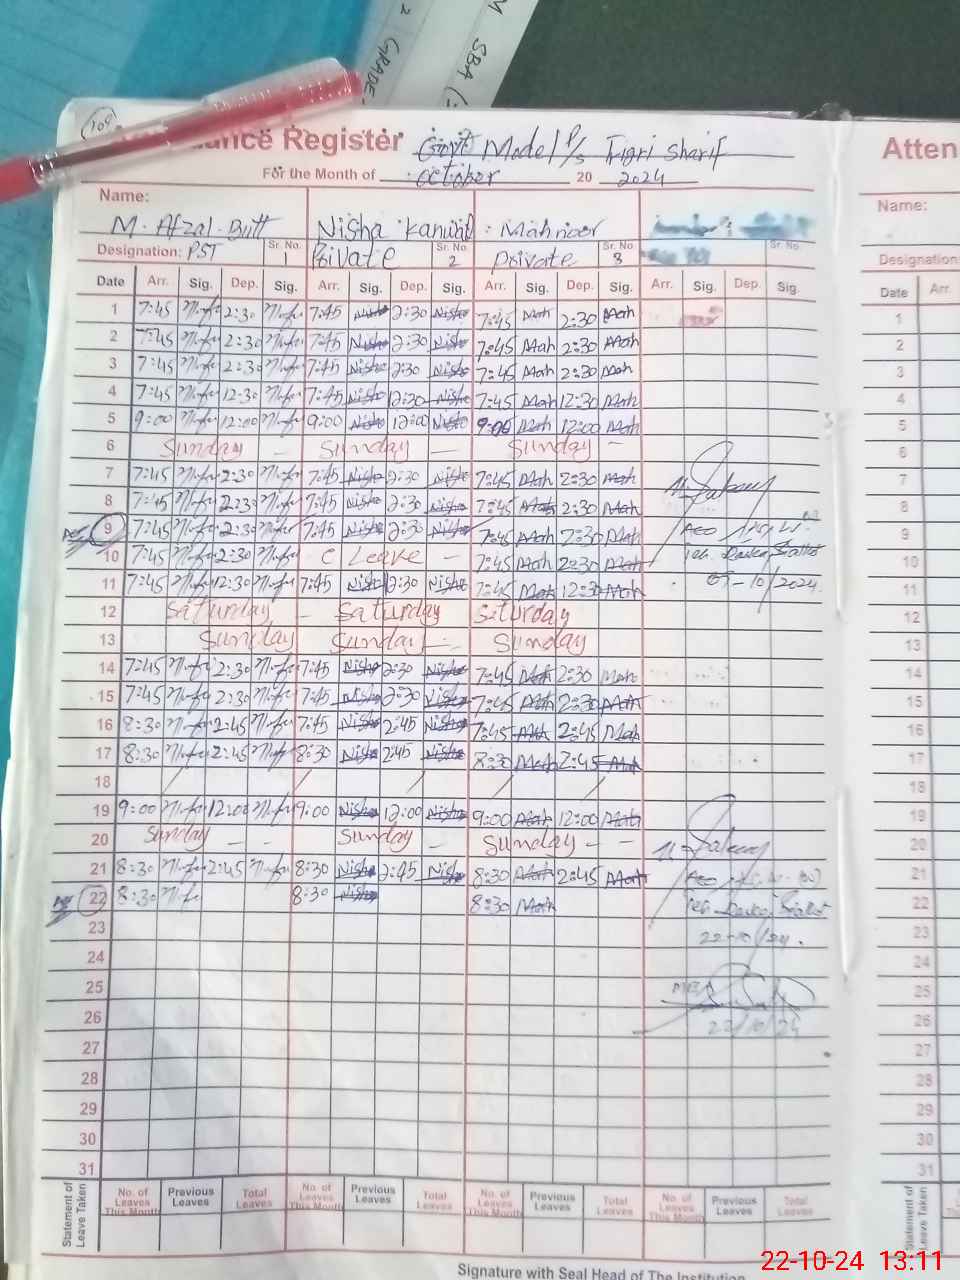 SBA
GRADE
109
Attendance Register Govt Model P/S Tigri Sharif
For the Month of October 20 2024
Name:
M. Afzal Butt Nisha Kanwal Mahnoor
Designation: PST Sr. No. 1 Private Sr. No. 2 Private Sr. No. 3 Sr. No.
Date Arr. Sig. Dep. Sig. Arr. Sig. Dep. Sig. Arr. Sig. Dep. Sig. Arr. Sig. Dep. Sig.
1 7:45 2:30 7:45 Nisha 2:30 Nisha 7:45 Mah 2:30 Mah
2 7:45 2:30 7:45 Nisha 2:30 Nisha 7:45 Mah 2:30 Mah
3 7:45 2:30 7:45 Nisha 2:30 Nisha 7:45 Mah 2:30 Mah
4 7:45 12:30 7:45 Nisha 12:30 Nisha 7:45 Mah 12:30 Mah
5 9:00 12:00 9:00 Nisha 12:00 Nisha 9:00 Mah 12:00 Mah
6 Sunday — Sunday — Sunday —
7 7:45 2:30 7:45 Nisha 2:30 Nisha 7:45 Mah 2:30 Mah
8 7:45 2:30 7:45 Nisha 2:30 Nisha 7:45 Mah 2:30 Mah
9 7:45 2:30 7:45 Nisha 2:30 Nisha 7:45 Mah 2:30 Mah AEO
10 7:45 2:30 C Leave — 7:45 Mah 2:30 Mah Teh
11 7:45 12:30 7:45 Nisha 12:30 Nisha 7:45 Mah 12:30 Mah 09-10/2024
12 Saturday — Saturday Saturday
13 Sunday Sunday — Sunday
14 7:45 2:30 7:45 Nisha 2:30 Nisha 7:45 Mah 2:30 Mah
15 7:45 2:30 7:45 Nisha 2:30 Nisha 7:45 Mah 2:30 Mah
16 8:30 2:45 7:45 Nisha 2:45 Nisha 7:45 Mah 2:45 Mah
17 8:30 2:45 8:30 Nisha 2:45 Nisha 8:30 Mah 2:45 Mah
18
19 9:00 12:00 9:00 Nisha 12:00 Nisha 9:00 Mah 12:00 Mah
20 Sunday — — Sunday — Sunday — —
21 8:30 2:45 8:30 Nisha 2:45 Nisha 8:30 Mah 2:45 Mah AEO
22 8:30 8:30 Nisha 8:30 Mah Teh
23 22-10/24.
24
25
26 22/10/24
27
28
29
30
31
Statement of Leave Taken
No. of Leaves This Month Previous Leaves Total Leaves No. of Leaves This Month Previous Leaves Total Leaves No. of Leaves This Month Previous Leaves Total Leaves No. of Leaves This Month Previous Leaves Total Leaves
Signature with Seal Head of The Institution
Atten
Name:
Designation:
Date Arr.
1
2
3
4
5
6
7
8
9
10
11
12
13
14
15
16
17
18
19
20
21
22
23
24
25
26
27
28
29
30
31
Statement of Leave Taken
22-10-24 13:11